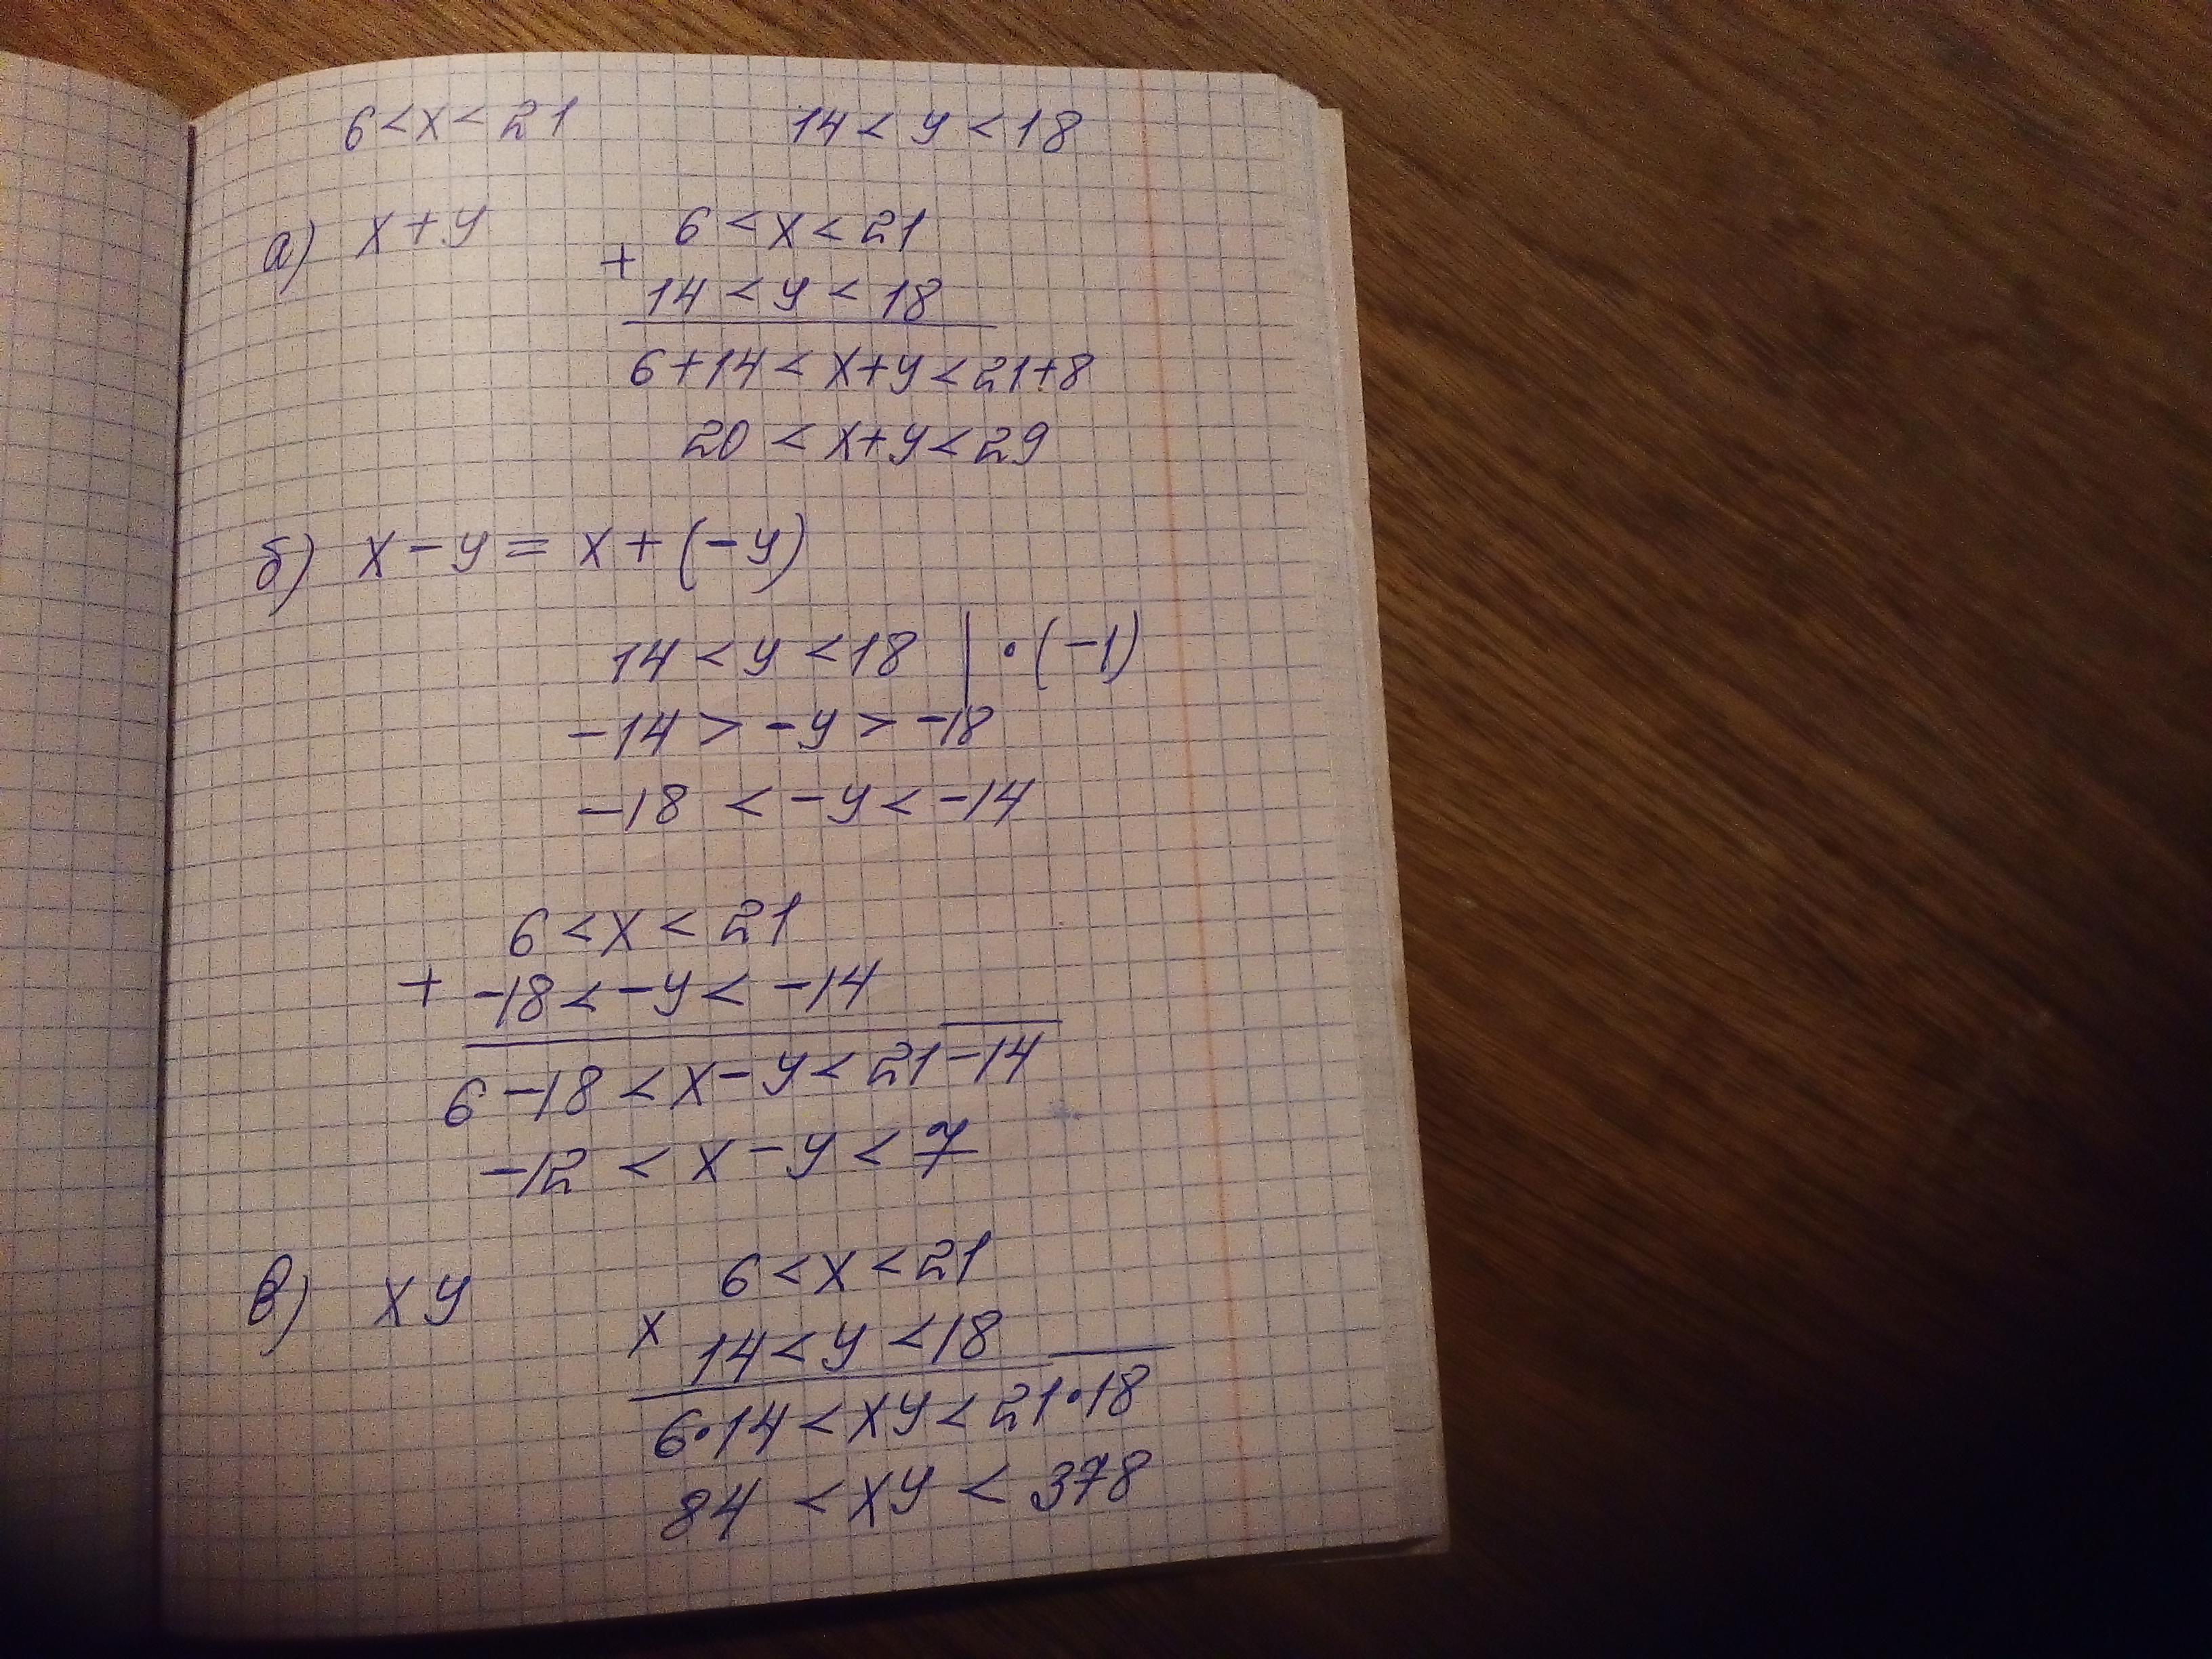 6 < x < 21 14 < y < 18
а) x + y 6 < x < 21
+
14 < y < 18
6 + 14 < x + y < 21 + 8
20 < x + y < 29
б) x - y = x + (-y)
14 < y < 18 | · (-1)
-14 > -y > -18
-18 < -y < -14
6 < x < 21
+ -18 < -y < -14
6 - 18 < x - y < 21 - 14
-12 < x - y < 7
в) xy 6 < x < 21
x 14 < y < 18
6 · 14 < xy < 21 · 18
84 < xy < 378